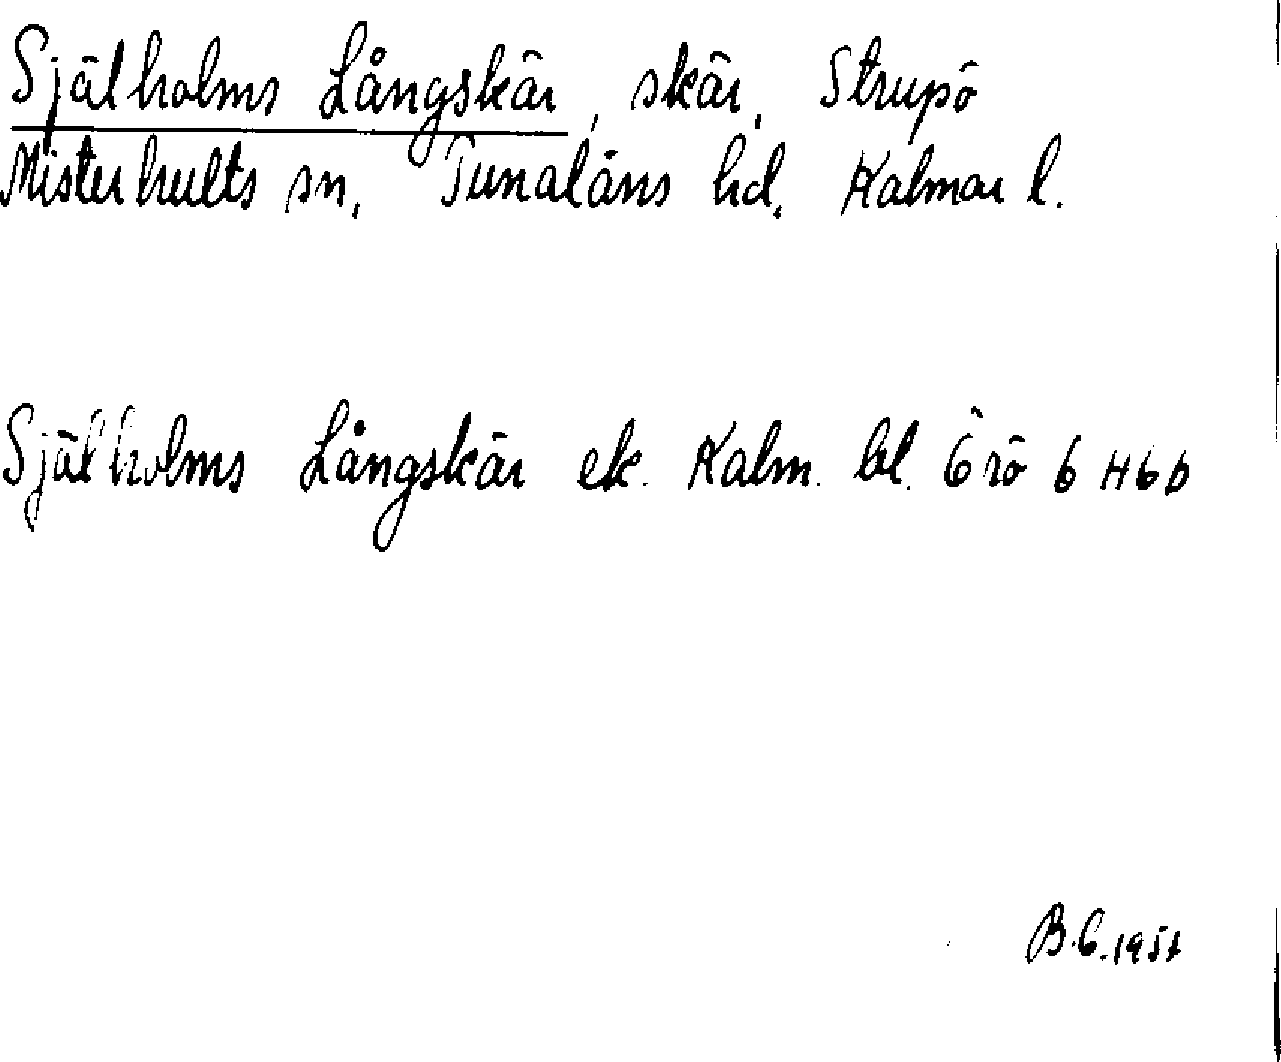 Själholms Långskär, skär, Strupö
Misterhults sn, Tunaläns hd, Kalmar l.
Själholms Långskär ek. Kalm. bl. Örö 6 H 6 b
B.C. 1957